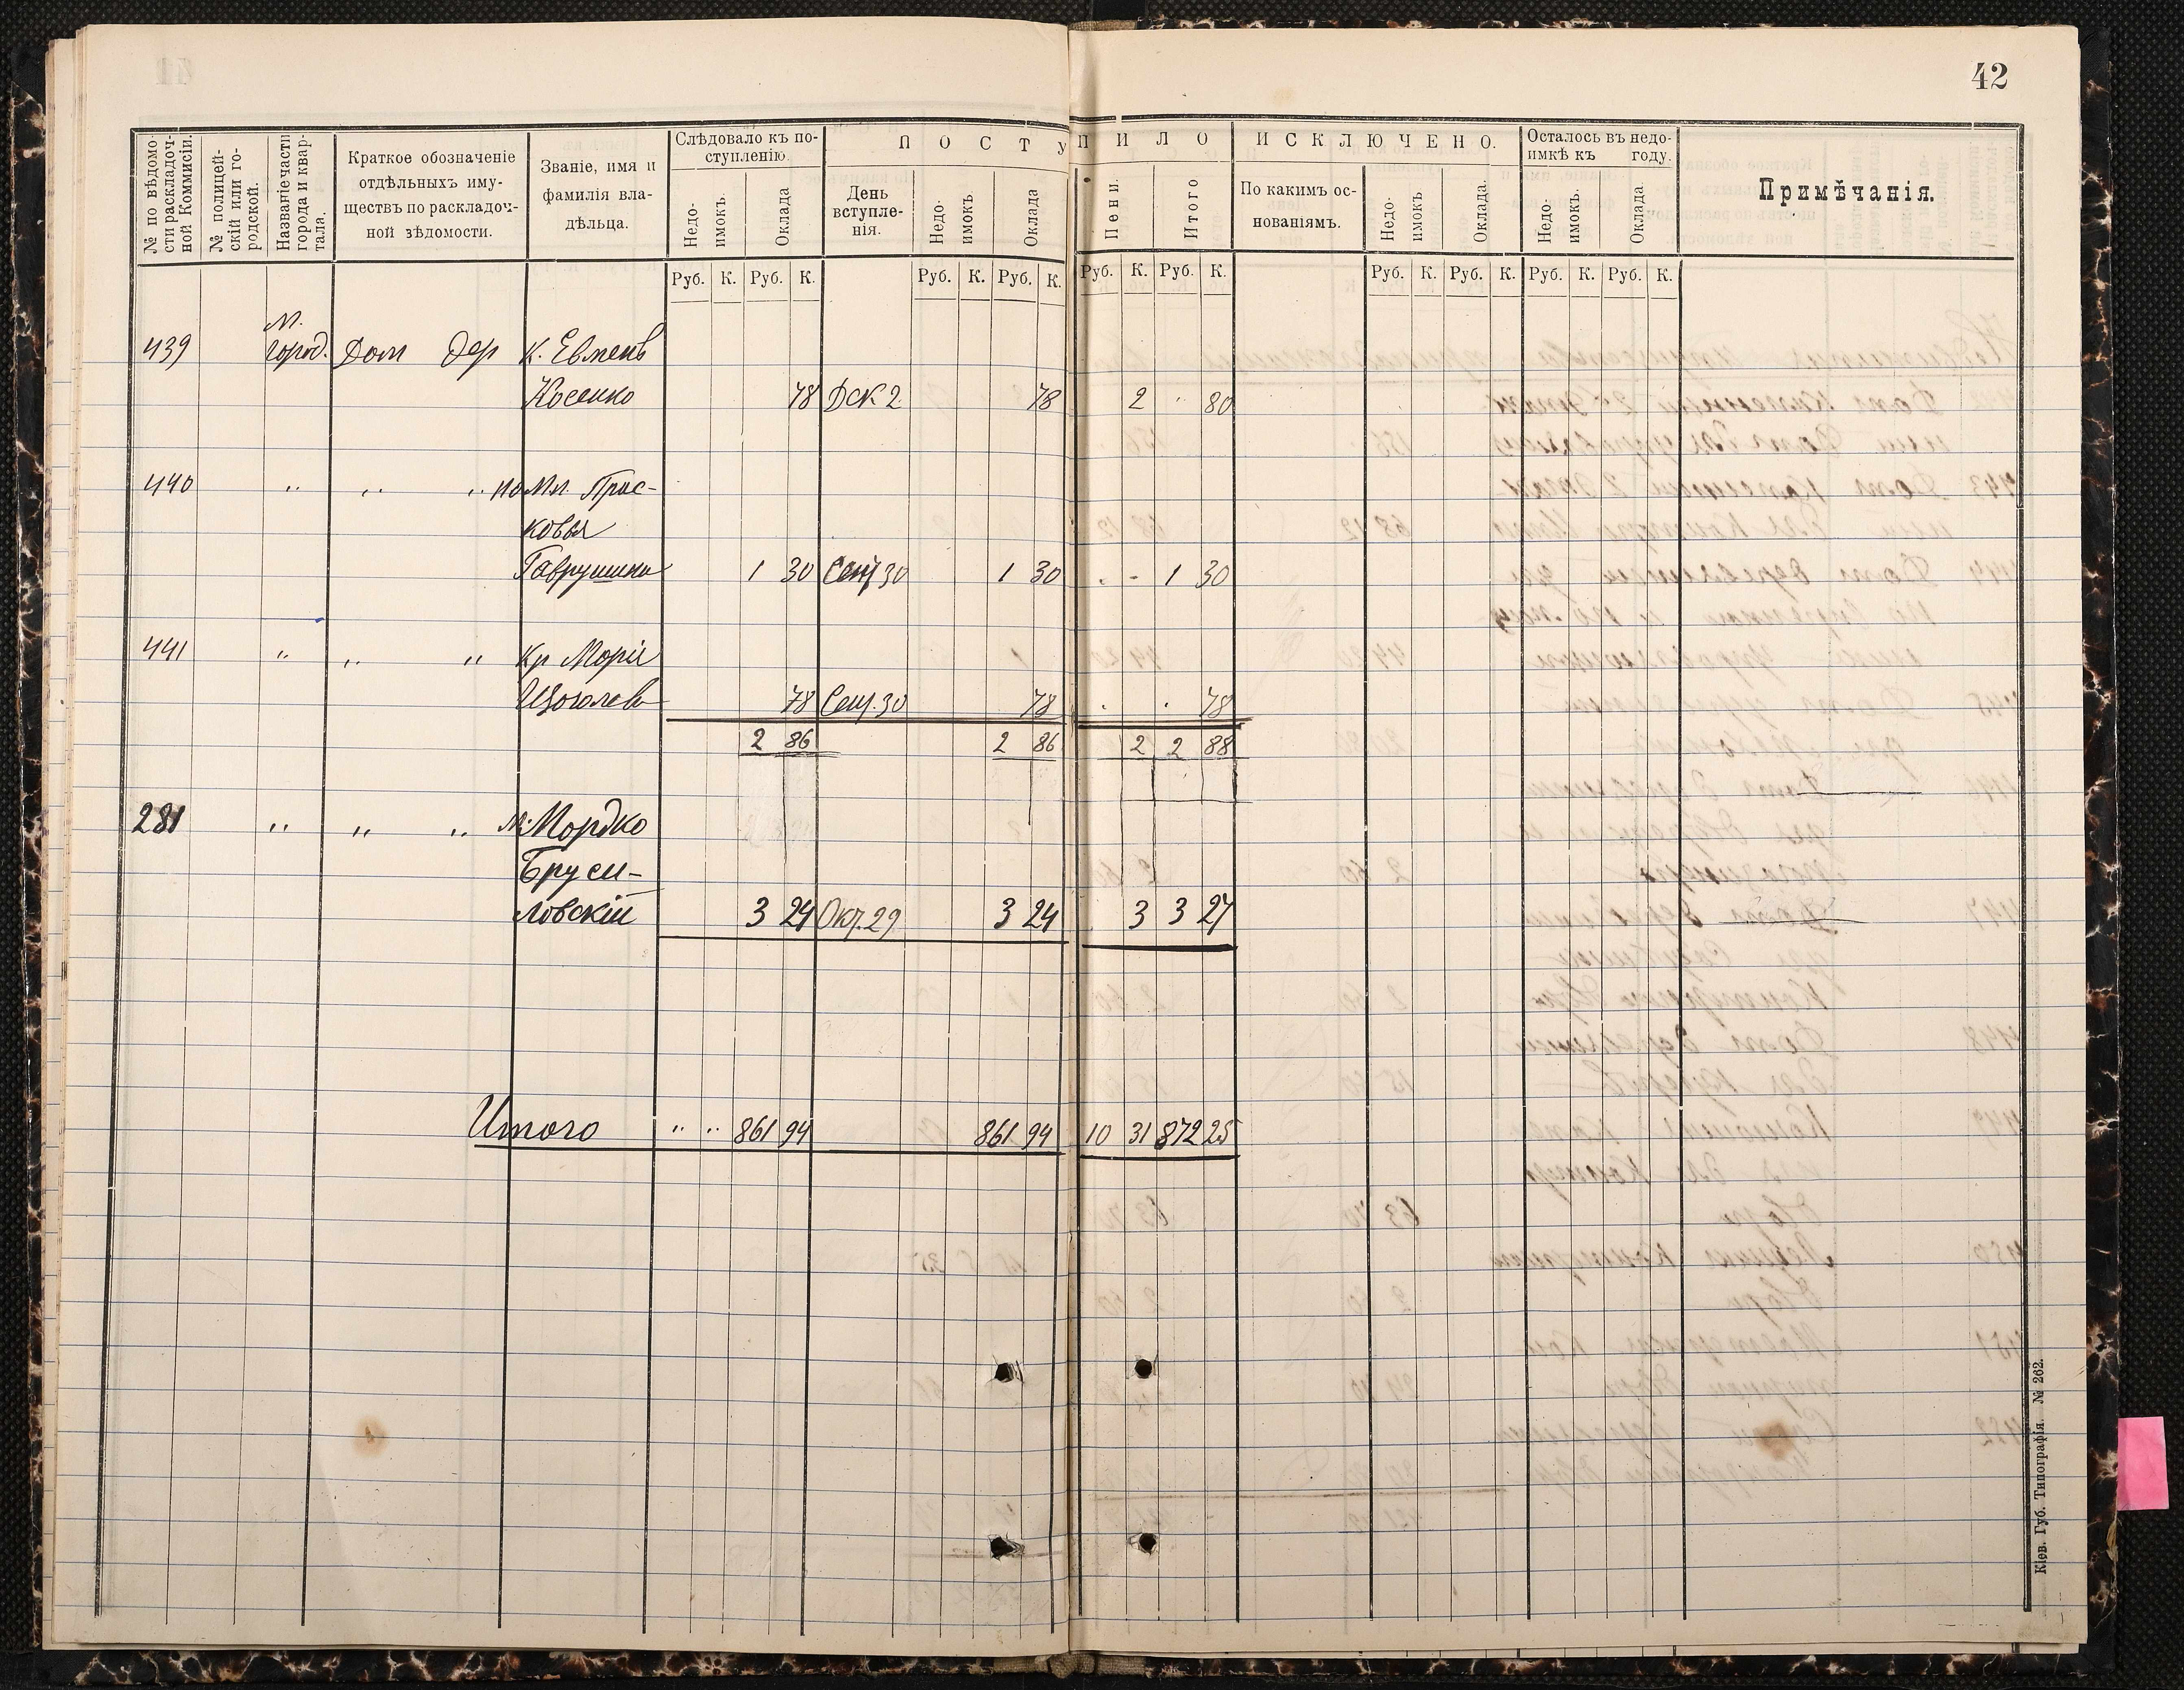 42
№ по вѣдомо-
сти раскладоч-
ной Коммисіи.
№ полицей-
скій или го-
родской.
Названіе части
города и квар-
тала.
Краткое обозначеніе
отдѣльныхъ иму-
ществъ по раскладоч-
ной вѣдомости.
Званіе, имя и
фамилія вла-
дѣльца.
Слѣдовало къ по-
ступленію.
Недо-
имокъ.
Оклада
ПОСТУПИЛО
День
вступле-
нія.
Недо-
имокъ.
Оклада
Пени.
Итого
ИСКЛЮЧЕНО.
По какимъ ос-
нованіямъ.
Недо-
имокъ
Оклада.
Осталось въ недо-
имкѣ къ году.
Недо-
имокъ.
Оклада.
Примѣчанія.
Руб. К. Руб. К. Руб. К. Руб. К. Руб. К. Руб. К. Руб. К. Руб. К. Руб. К. Руб. К.
М.
439 город. Дом дер К. Евмень
Косенко 78 Дек 2 78 2 . 80
440 " " " по Мл. Прас-
ковья
Гаврушина 1 30 Сент 30 1 30 . - 1 30
441 " " " Кр Марія
Щоголева 78 Сент. 30 78 . . 78
2 86 2 86 2 2 88
281 " " " М. Мордко
Бруси-
ловскій 3 24 Окт. 29 3 24 3 3 27
Итого " " 861 94 861 94 10 31 872 25
Кіев. Губ. Типографія. № 262.